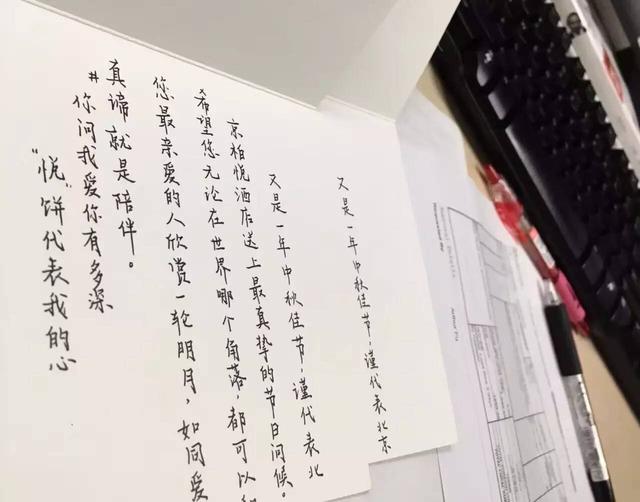 又是一年中秋佳节，谨代表北京
又是一年中秋佳节，谨代表北
京柏悦酒店送上最真挚的节日问候。
希望您无论在世界哪个角落，都可以和
您最亲爱的人欣赏一轮明月，如同爱
真谛就是陪伴。
#你问我爱你有多深
“悦”饼代表我的心